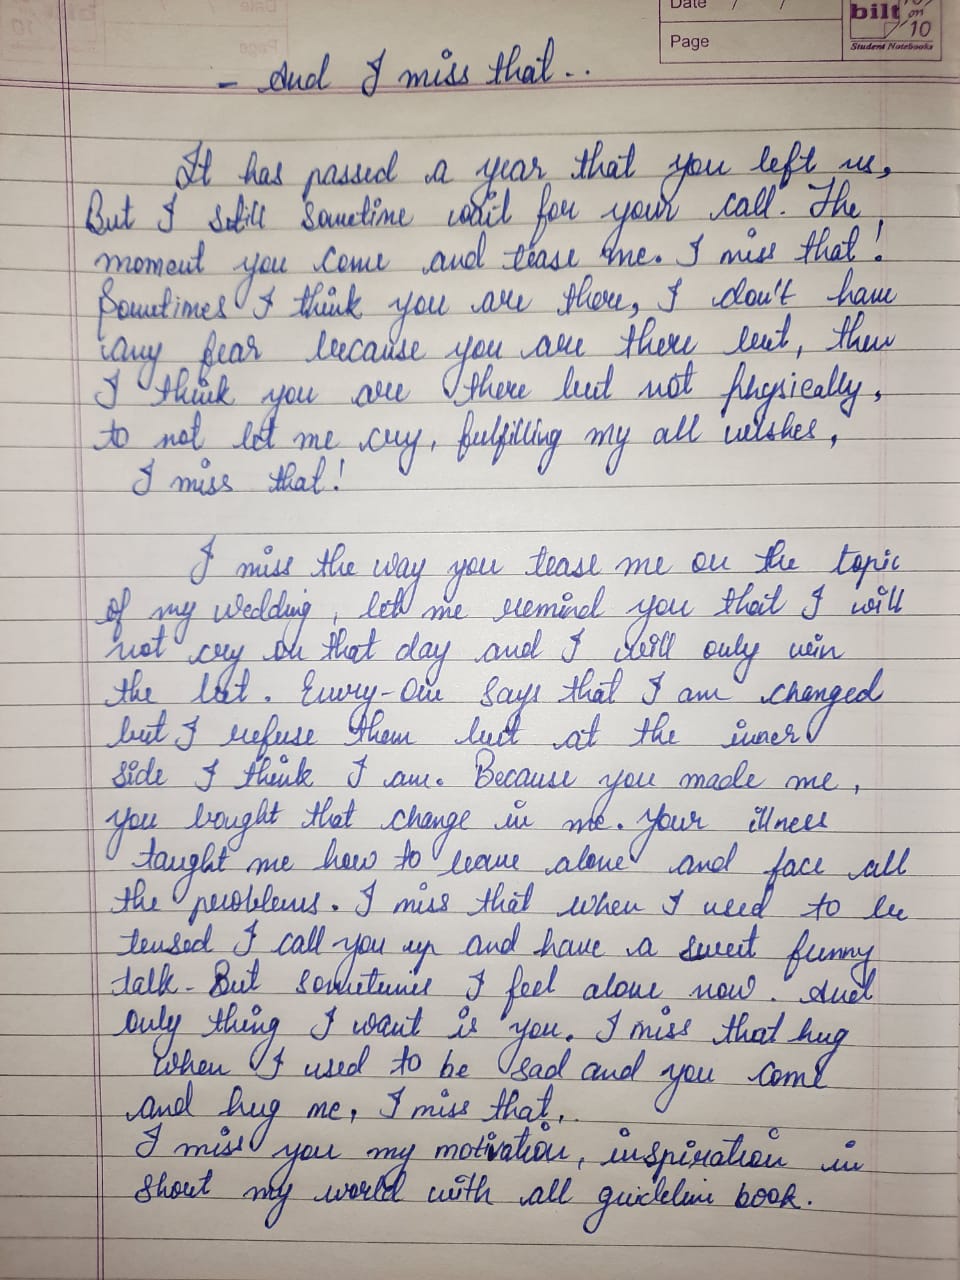 Date / /
Page
bilt on 10
Student Notebooks
- And I miss that...
It has passed a year that you left us,
But I still sometime wait for your call. The
moment you come and tease me. I miss that!
Sometimes I think you are there, I don't have
any fear because you are there but, then
I think you are there but not physically,
to not let me cry, fulfilling my all wishes,
I miss that!
I miss the way you tease me on the topic
of my wedding, let me remind you that I will
not cry on that day and I will only win
the bet. Every-one says that I am changed
but I refuse them but at the inner
side I think I am. Because you made me,
you bought that change in me. Your illness
taught me how to leave alone and face all
the problems. I miss that when I used to be
tensed I call you up and have a sweet funny
talk. But sometimes I feel alone now. And
only thing I want is you. I miss that hug
when I used to be sad and you come
and hug me, I miss that.
I miss you my motivation, inspiration in
short my world with all guideline book.